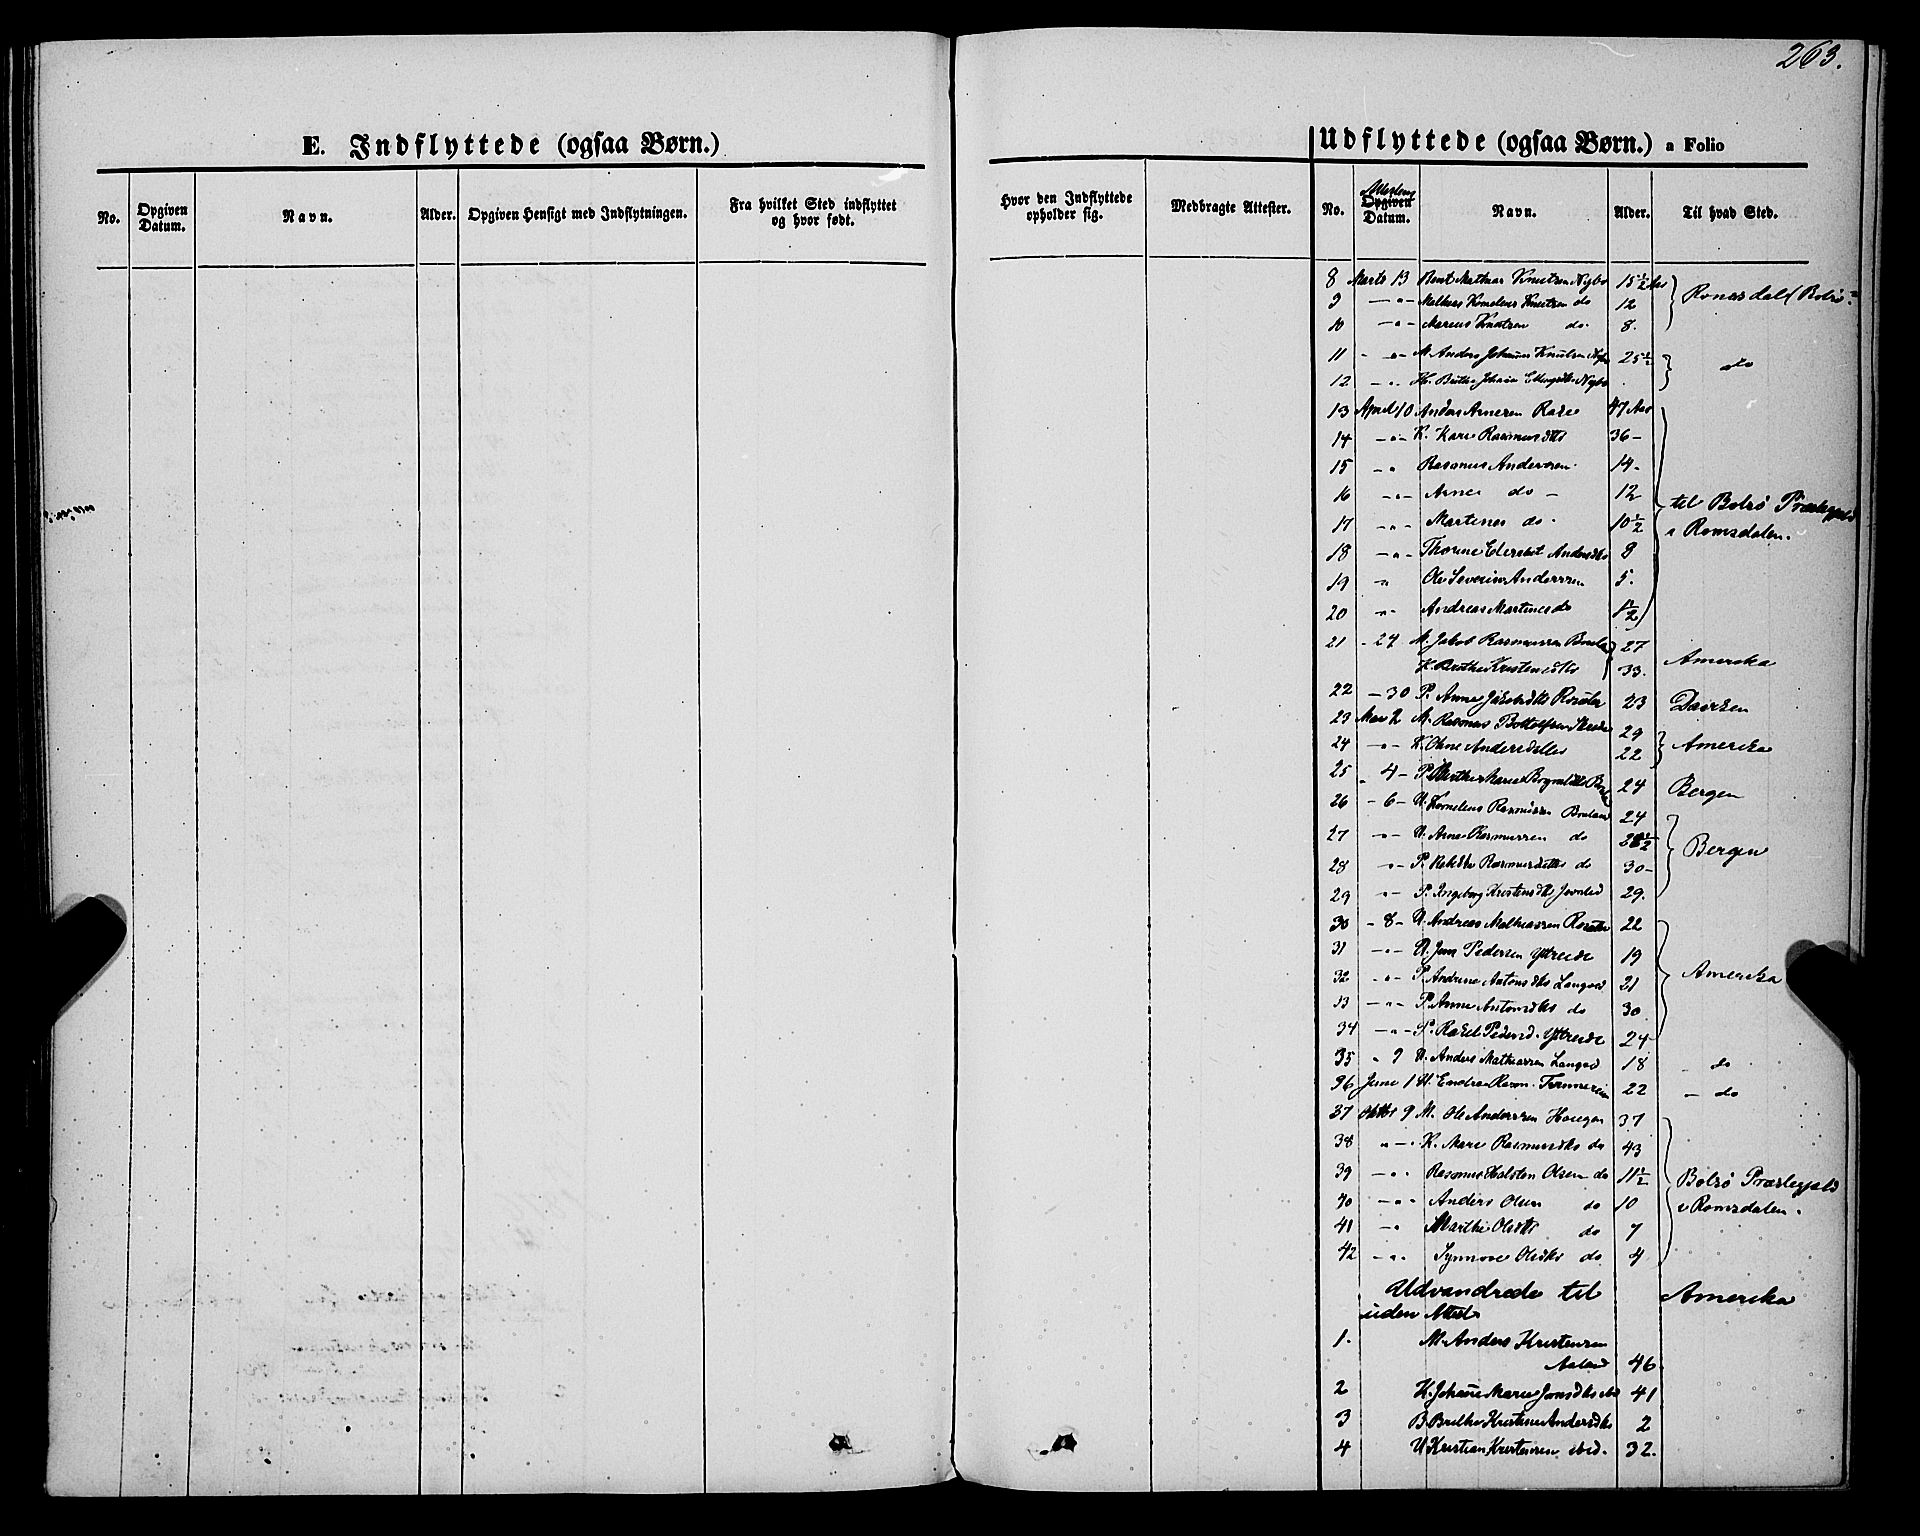 263.
E. Indflyttede (ogsaa Børn.)
No. Opgiven Datum. Navn. Alder. Opgiven Hensigt med Indflytningen. Fra hvilket Sted indflyttet og hvor født.
Hvor den Indflyttede opholder sig. Medbragte Attester.
Udflyttede (ogsaa Børn.) a Folio
No. Attestens Opgiven Datum. Navn. Alder. Til hvad Sted.
8 Marts 13 Bent Mathias Knutsen Nybø 15 1/2 Aar
9 - " - Mathias Kornelius Knutsen do 12 Romsdal (Bolsø
10 - " - Marius Knutsen do. 8.
11 - " - M. Anders Johannes Knutsen Nybø 25 1/2 do
12 - " - K. Brithe Johanne Nybø
13 April 10 Anders Arnesen 47 Aar
14 - " - K. Kari Rasmusdtr 36 -
15 - " Rasmus Andersen. 14 -
16 - " - Arne do - 12 til Bolsø Præstegjeld
17 - " - Martines do - 10 1/2 i Romsdalen.
18 - " - Thorine Andersdtr 8
19 " Ole Severin Andersen 5.
20 " - Andreas Martines do 1 1/2
21 - 24 M. Jakob Rasmussen 27 Amerika
K. Brithe Kristensdtr 33.
22 - 30 P. Anne Jakobsdtr 23
23 Mai 2 M. Rasmus Bottolfsen 29
24 - " - K. Oline Andersdatter 22 Amerika
25 - 4 - P. Marie 24 Bergen
26 - 6 - U. Kornelius Rasmussen 24
27 - " - U. Arne Rasmussen do Bergen
28 " - P. Rasmusdatter do 30 -
29 " - P. Ingeborg Kristensdtr 29.
30 - 8 - U. Andreas Mathiassen 22
31 - " - U. Jens Pedersen Yttreide 19
32 - " - P. Andrine Antonsdtr Langvad 21 Amerika
33 - " - P. Anne Antonsdtr do 30
34 - " - P. Rakel Pedersd. Yttreide 24
35 " 9 U. Anders Mathiassen Langvad 18 - do
36 Juni 1 U. Endre Rasm. 22 - do
37 Oktbr 9 M. Ole Andersen Haugen 37
38 " - " K. Mari Rasmusdtr do 43
39 - " " Rasmus Halsten Olsen do 11 1/2 Bolsø Præstegjeld
40 - " " Anders Olsen do 10 i Romsdalen.
41 - " Marthe Olsdtr do 7
42 - " " Synnøve Olsdtr do 4
Udvandrede til Amerika
uden Attest
1. M. Anders Kristensen
46
2 K. Johanne Marie Jonsdtr ibd 41
3 B. Brithe Kristine Andersdtr 2
4 U. Kristian Kristensen ibid. 32.